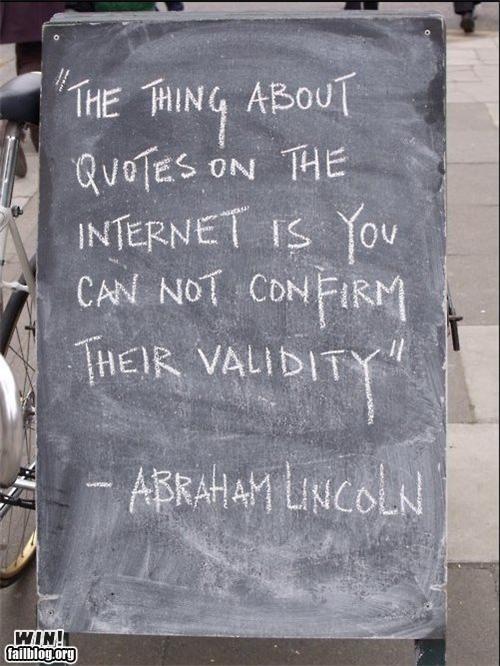 "THE THING ABOUT
QUOTES ON THE
INTERNET IS YOU
CAN NOT CONFIRM
THEIR VALIDITY"
- ABRAHAM LINCOLN
WIN!
failblog.org